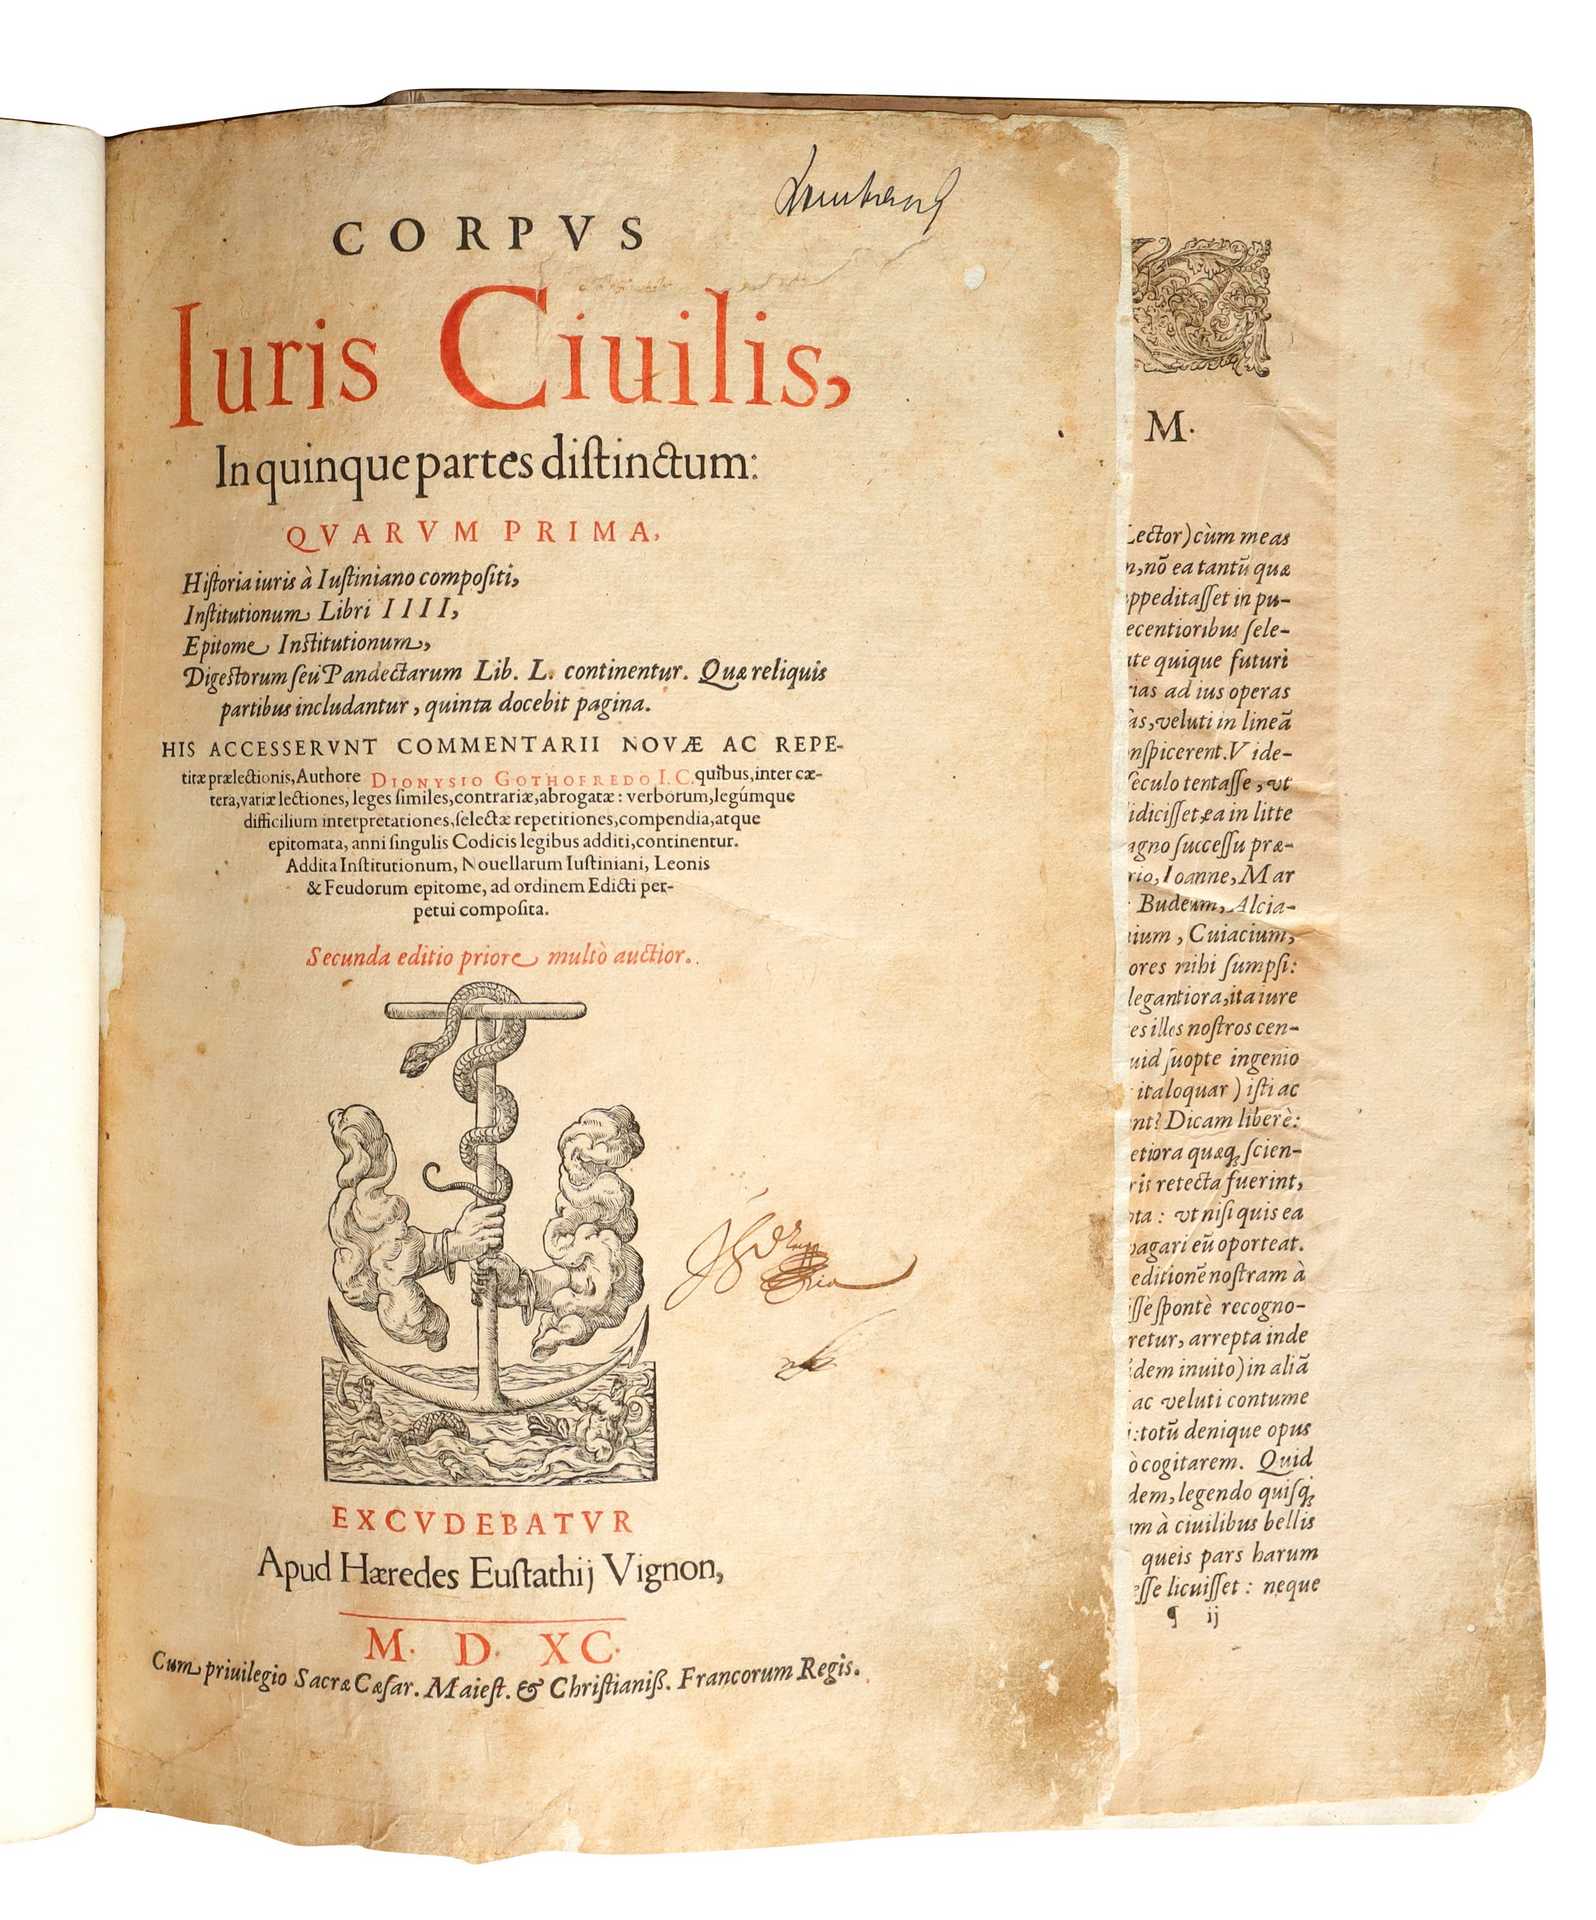 CORPVS
Iuris Ciuilis,
In quinque partes diſtinctum:
QVARVM PRIMA,
Hiſtoria iuris à Iuſtiniano compoſiti,
Inſtitutionum Libri IIII,
Epitome Inſtitutionum,
Digeſtorum ſeu Pandectarum Lib. L. continentur. Quæ reliquis
partibus includantur, quinta docebit pagina.
HIS ACCESSERVNT COMMENTARII NOVÆ AC REPE-
titæ prælectionis, Authore DIONYSIO GOTHOFREDO I.C. quibus, inter cæ-
tera, variæ lectiones, leges ſimiles, contrariæ, abrogatæ: verborum, legúmque
difficilium interpretationes, ſelectæ repetitiones, compendia, atque
epitomata, anni ſingulis Codicis legibus additi, continentur.
Addita Inſtitutionum, Nouellarum Iuſtiniani, Leonis
& Feudorum epitome, ad ordinem Edicti per-
petui compoſita.
Secunda editio priore multò auctior.
EXCVDEBATVR
Apud Hæredes Euſtathij Vignon,
M. D. XC.
Cum priuilegio Sacræ Cæſar. Maieſt. & Chriſtianiß. Francorum Regis.
M.
Lector) cùm meas
nõ ea tantũ quæ
in pu-
ecentioribus ſele-
quique futuri
ad ius operas
veluti in lineã
onſpicerent. Vide-
ſeculo tentaſſe, vt
idiciſſet ea in litte
agno ſucceſſu præ-
rio, Ioanne, Mar
Budeum, Alcia-
Cuiacium,
ores mihi ſumpſi:
legantiora, ita iure
es illos noſtros cen-
uid ſuopte ingenio
ita loquar) iſti ac
nt? Dicam liberè:
quæq; ſcien-
retecta fuerint,
vt niſi quis ea
pagari eũ oporteat.
editionẽ noſtram à
ſpontè recogno-
retur, arrepta inde
dem inuito) in aliã
ac veluti contume
totũ denique opus
cogitarem. Quid
dem, legendo quiſq;
à ciuilibus bellis
queis pars harum
eſſe licuiſſet: neque
¶ ij